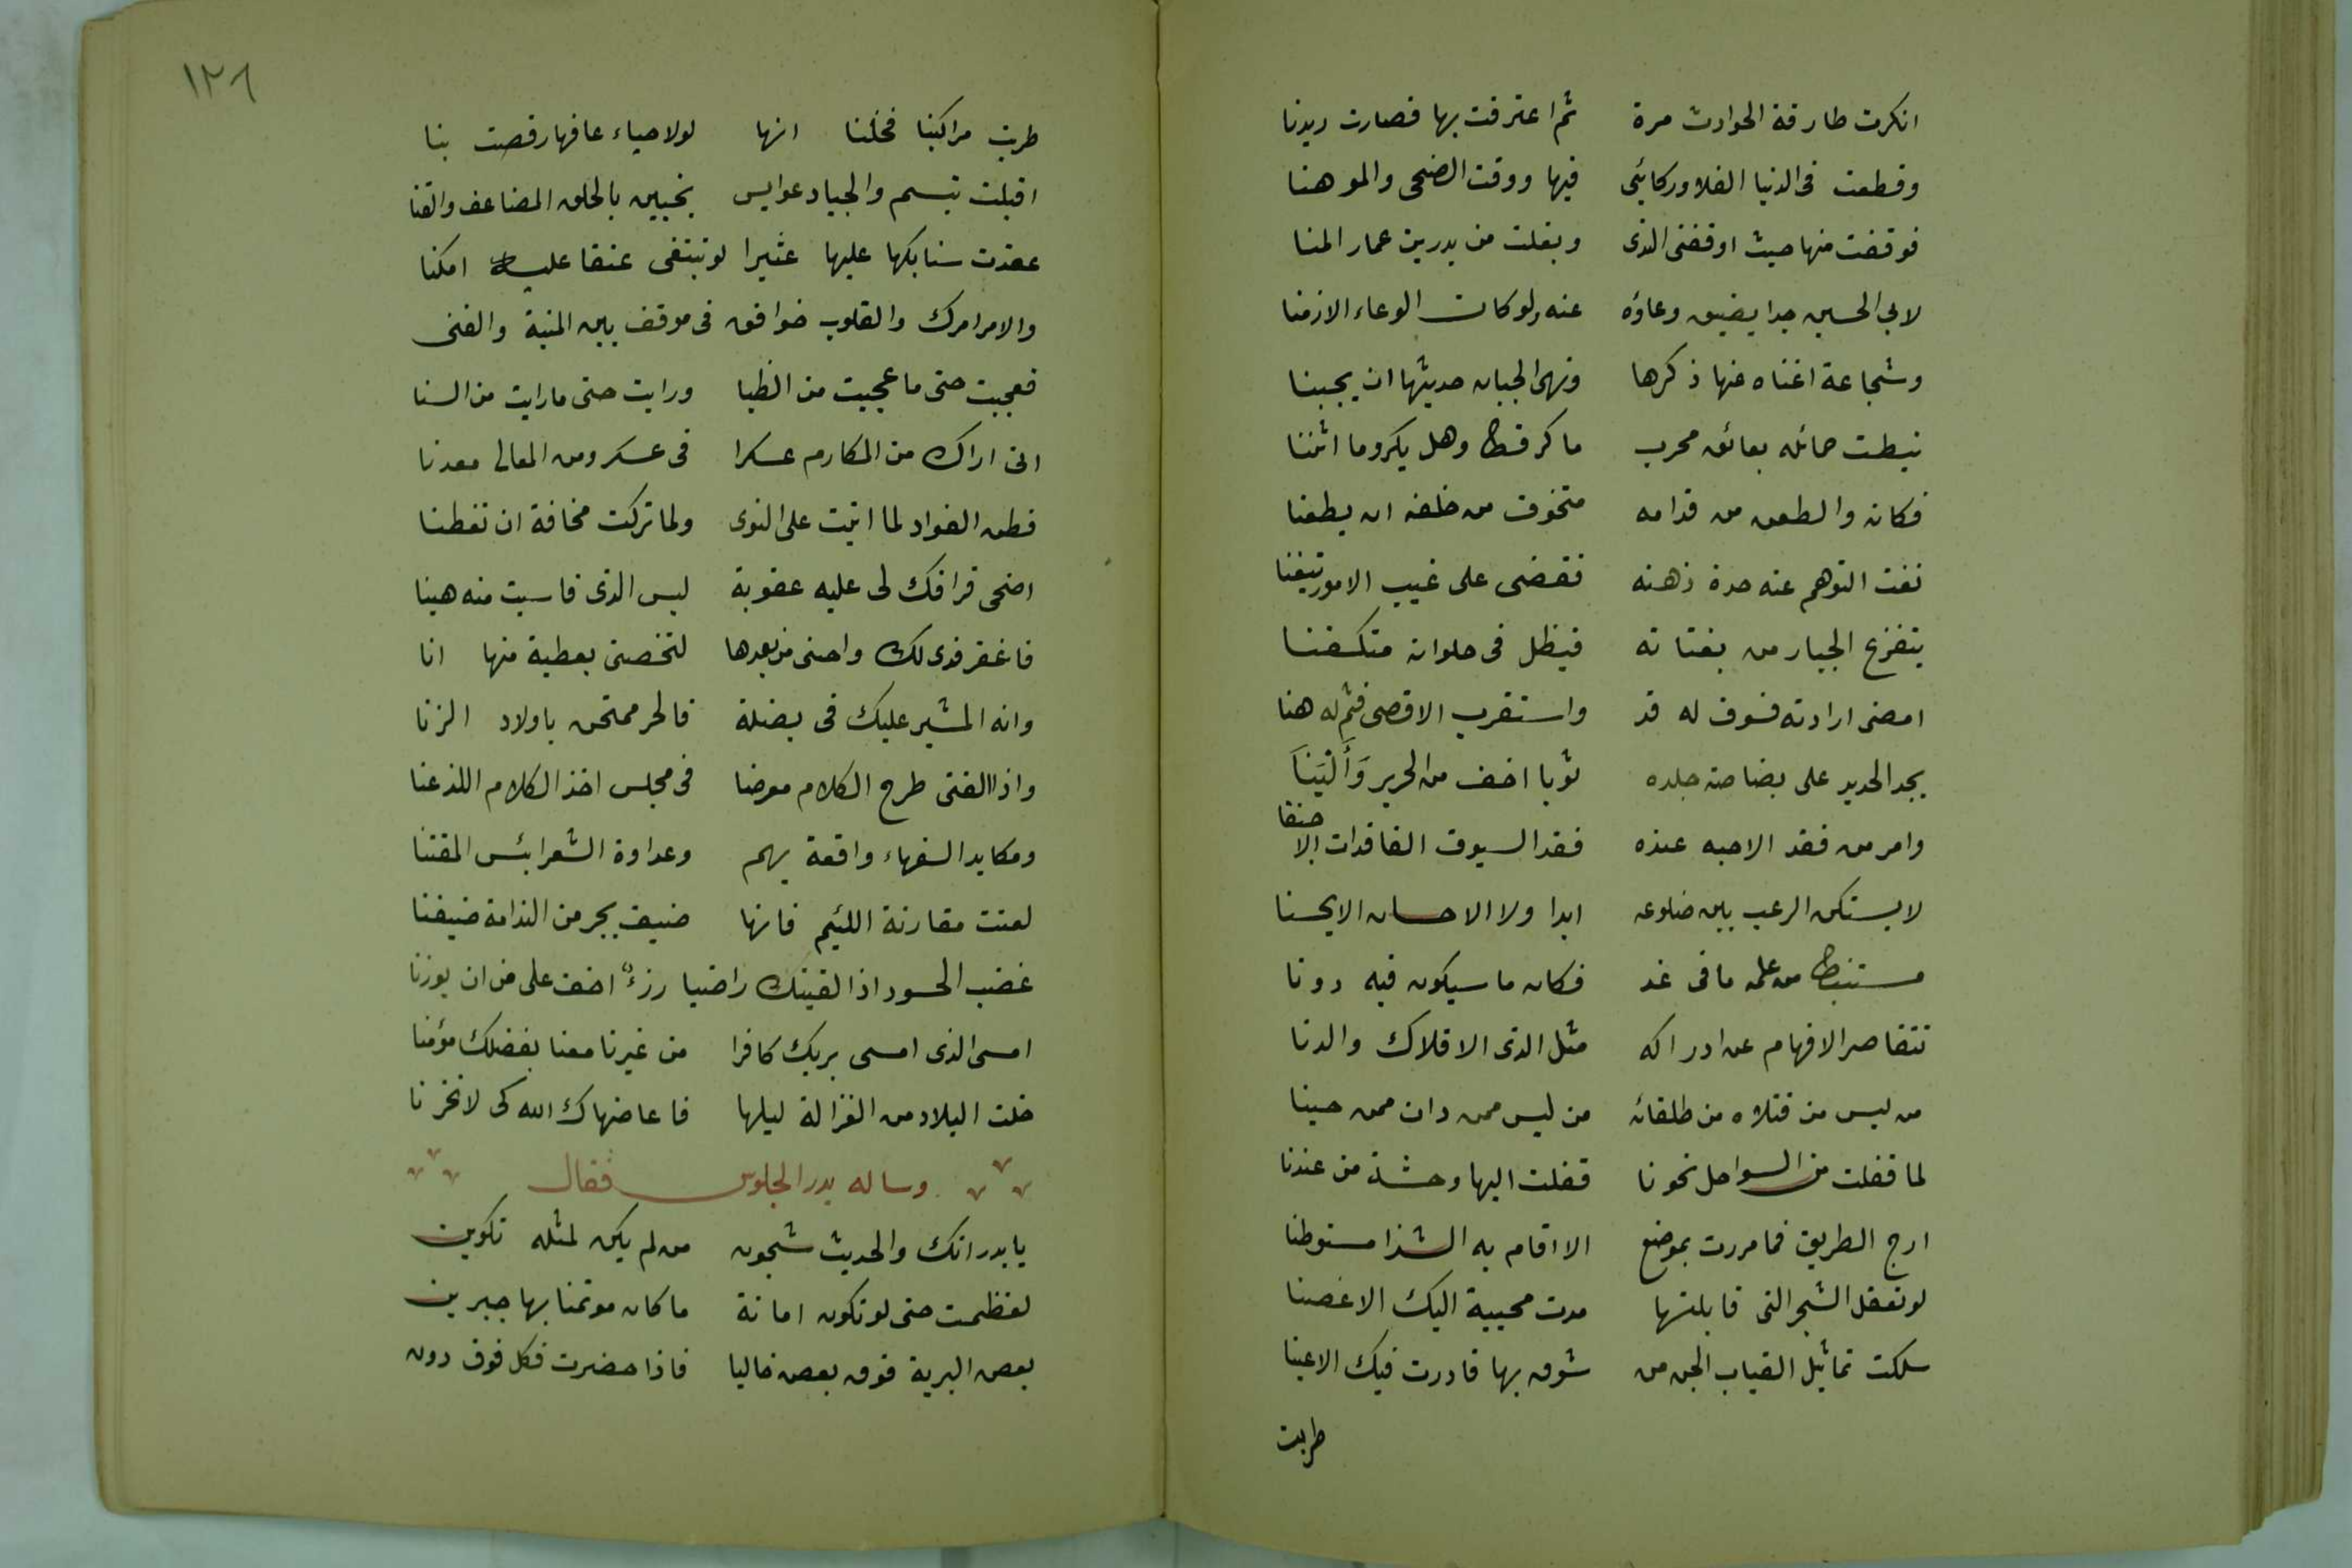 انكرت طارقة الحوادث مرة ثم اعترفت بها فصارت ديدنا
وقطعت فى الدنيا الفلا وركائبى فيها ووقت الضحى والموهنا
فوقفت منها حيث اوقفنى الندى وبغلت من بدر بن عمار المنا
لابى الحسين جدا يضيق وعاؤه عنه ولو كان الوعاء الازمنا
وشجاعة اغناه عنها ذكرها ونهى الجبان حديثها ان يجبنا
نيطت حمائله بعاتق محرب ما كر قط وهل يكر وما انثنا
فكانه والطعن من قدامه متخوف من خلفه ان يطعنا
نفت التوهم عنه حدة ذهنه فقضى على غيب الامور تيقنا
يتفزع الجبار من بغتاته فيظل فى خلواته متكفنا
امضى ارادته فسوف له قد واستقرب الاقصى فثم له هنا
يجد الحديد على بضاضة جلده ثوبا اخف من الحرير وَأَلْيَنَا
وامر من فقد الاحبه عنده فقد السيوف الفاقدات الاجفنا
لا يستكن الرعب بين ضلوعه ابدا ولا الاحسان الا يحسنا
مستنبط من علمه ما فى غد فكان ما سيكون فيه دونا
تتقاصر الافهام عن ادراكه مثل الذى الافلاك والدنا
من ليس من قتلاه من طلقائه من ليس ممن دان ممن حينا
لما قفلت من السواحل نحونا قفلت اليها وحشة من عندنا
ارج الطريق فما مررت بموضع الا اقام به الشذا مستوطنا
لو تعقل الشجر التى قابلتها مدت محيية اليك الاغصنا
سلكت تماثيل القباب الجن من شوق بها فادرت فيك الاعينا
طربت
١٢٦
طربت مراكبنا فخلنا انها لولا حياء عافها رقصت بنا
اقبلت تبسم والجياد عوابس يخببن بالحلق المضاعف والقنا
عقدت سنابكها عليها عثيرا لو تبتغى عنقا عليه امكنا
والامر امرك والقلوب خوافق فى موقف بين المنية والغنى
فعجبت حتى ما عجبت من الظبا ورايت حتى ما رايت من السنا
انى اراك من المكارم عسكرا فى عسكر ومن المعالى معدنا
فطن الفواد لما اتيت على النوى ولما تركت مخافة ان تفطنا
اضحى فراقك لى عليه عقوبة ليس الذى قاسيت منه هينا
فاغفر فدى لك واحبنى من بعدها لتخصنى بعطية منها انا
وانه المشير عليك فى بضلة فالحر ممتحن باولاد الزنا
واذا الفتى طرح الكلام معرضا فى مجلس اخذ الكلام اللذ عنا
ومكايد السفهاء واقعة بهم وعداوة الشعرا بئس المقتنا
لعنت مقارنة اللئيم فانها ضيف يجر من الندامة ضيفنا
غضب الحسود اذا لقيتك راضيا رزءٌ اخف على من ان يوزنا
امسى الذى امسى بربك كافرا من غيرنا معنا بفضلك مؤمنا
خلت البلاد من الغزالة ليلها فاعاضهاك الله كى لا نحزنا
وساله بدر الجلوس فقال
يا بدر انك والحديث شجون من لم يكن لمثله تكوين
لعظمت حتى لو تكون امانة ما كان موتمنا بها جبرين
بعض البرية فوق بعض خاليا فاذا حضرت فكل فوق دون